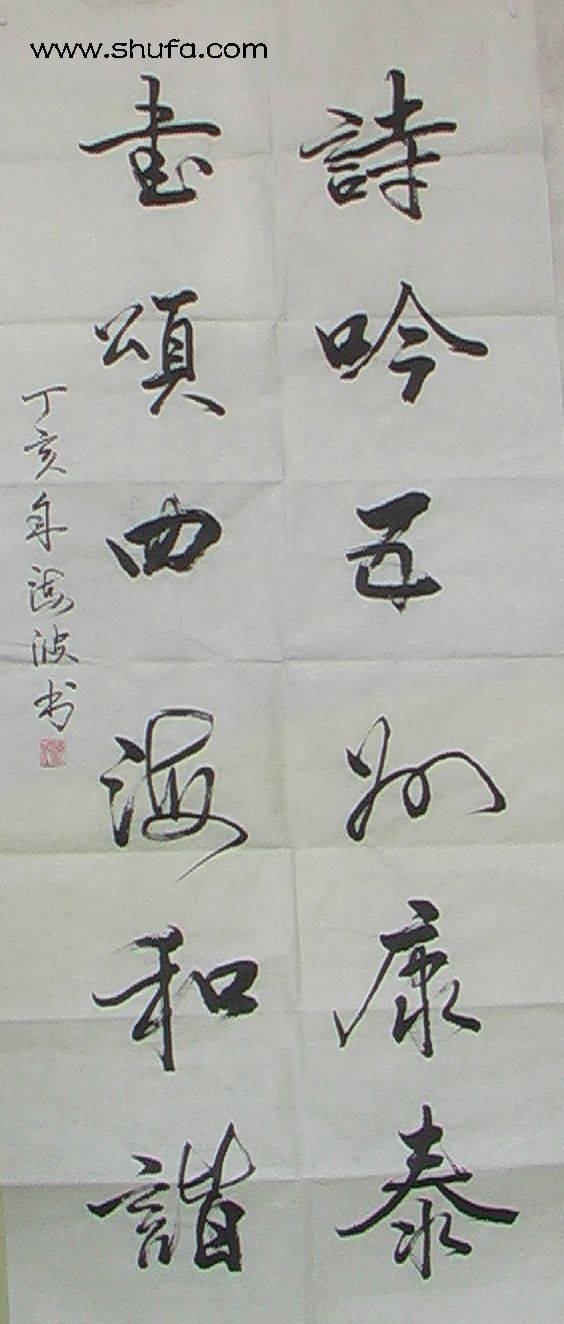 www.shufa.com
詩吟五州康泰
書頌四海和諧
丁亥年海波书